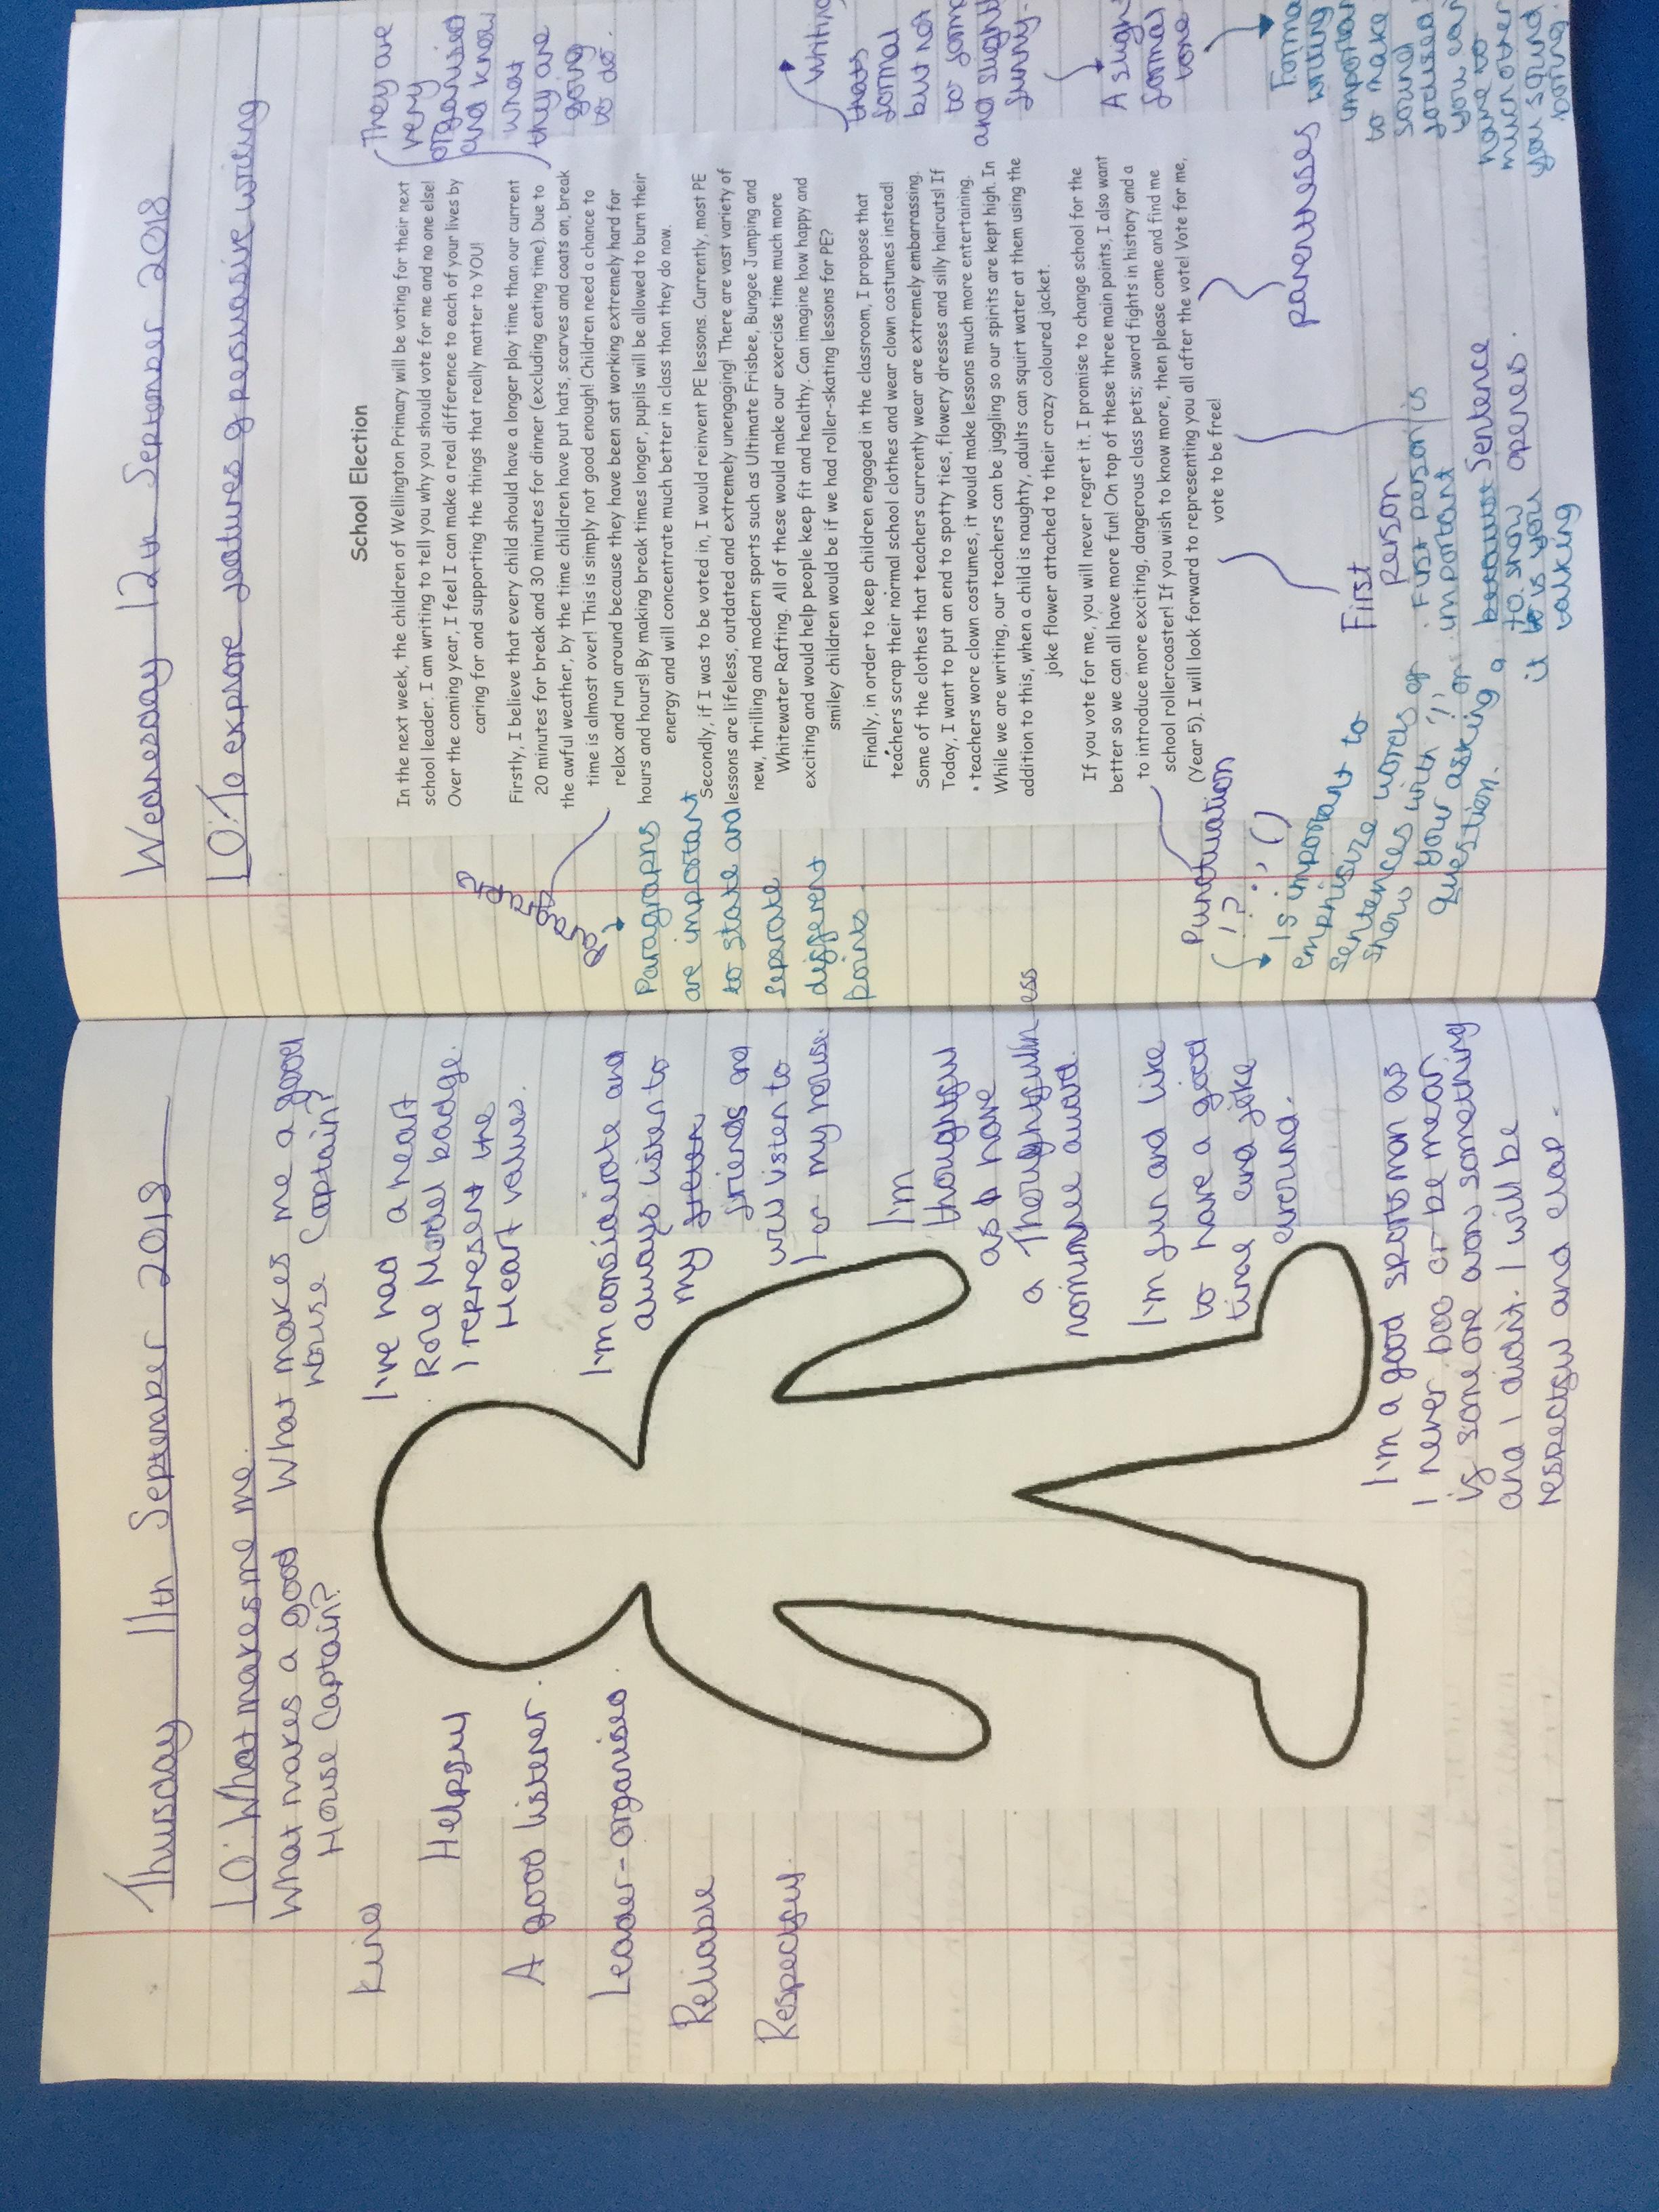 Thursday 11th September 2018
LO: What makes me me.
What makes a good
House Captain?
Kind
Helpful
A good listener.
Leader-organised
Reliable
Respectful.
What makes me a good
House Captain?
I've had a heart
Role Model badge.
I represent the
Heart values.
I'm considerate and
always listen to
my
friends and
will listen to
my house.
I'm
thoughtful
as I have
a Thoughtfulness
nominee award.
I'm fun and like
to have a good
time and joke
around.
I'm a good sportsman as
I never boo or be mean
if someone won something
and I didn't. I will be
respectful and clap.
Wednesday 12th September 2018
LO: To explore features of persuasive writing
School Election
In the next week, the children of Wellington Primary will be voting for their next
school leader. I am writing to tell you why you should vote for me and no one else!
Over the coming year, I feel I can make a real difference to each of your lives by
caring for and supporting the things that really matter to YOU!
Firstly, I believe that every child should have a longer play time than our current
20 minutes for break and 30 minutes for dinner (excluding eating time). Due to
the awful weather, by the time children have put hats, scarves and coats on, break
time is almost over! This is simply not good enough! Children need a chance to
relax and run around because they have been sat working extremely hard for
hours and hours! By making break times longer, pupils will be allowed to burn their
energy and will concentrate much better in class than they do now.
Secondly, if I was to be voted in, I would reinvent PE lessons. Currently, most PE
lessons are lifeless, outdated and extremely unengaging! There are vast variety of
new, thrilling and modern sports such as Ultimate Frisbee, Bungee Jumping and
Whitewater Rafting. All of these would make our exercise time much more
exciting and would help people keep fit and healthy. Can imagine how happy and
smiley children would be if we had roller-skating lessons for PE?
Finally, in order to keep children engaged in the classroom, I propose that
teachers scrap their normal school clothes and wear clown costumes instead!
Some of the clothes that teachers currently wear are extremely embarrassing.
Today, I want to put an end to spotty ties, flowery dresses and silly haircuts! If
teachers wore clown costumes, it would make lessons much more entertaining.
While we are writing, our teachers can be juggling so our spirits are kept high. In
addition to this, when a child is naughty, adults can squirt water at them using the
joke flower attached to their crazy coloured jacket.
If you vote for me, you will never regret it. I promise to change school for the
better so we can all have more fun! On top of these three main points, I also want
to introduce more exciting, dangerous class pets; sword fights in history and a
school rollercoaster! If you wish to know more, then please come and find me
(Year 5). I will look forward to representing you all after the vote! Vote for me,
vote to be free!
They are
very
organised
and know
what
they are
going
to do.
Writing
thats
formal
but not
to
and
funny.
A
formal
tone
writing
important
to make
sound
you can
have to
much other
you sound
boring.
Paragraphs
are important
to state and
separate
different
points.
Punctuation
! ? . , ( )
Is important to
emphisize
sentences words or
show with ! ,
your asking a
question.
First
person
First person is
important
sentence
to show openes.
it is you
talking
parentheses